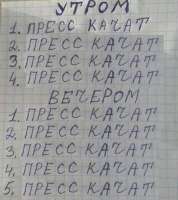 УТРОМ
1. ПРЕСС КАЧАТ
2. ПРЕСС КАЧАТ
3. ПРЕСС КАЧАТ
4. ПРЕСС КАЧАТ
ВЕЧЕРОМ
1. ПРЕСС КАЧАТ
2. ПРЕСС КАЧАТ
3. ПРЕСС КАЧАТ
4. ПРЕСС КАЧАТ
5. ПРЕСС КАЧАТ